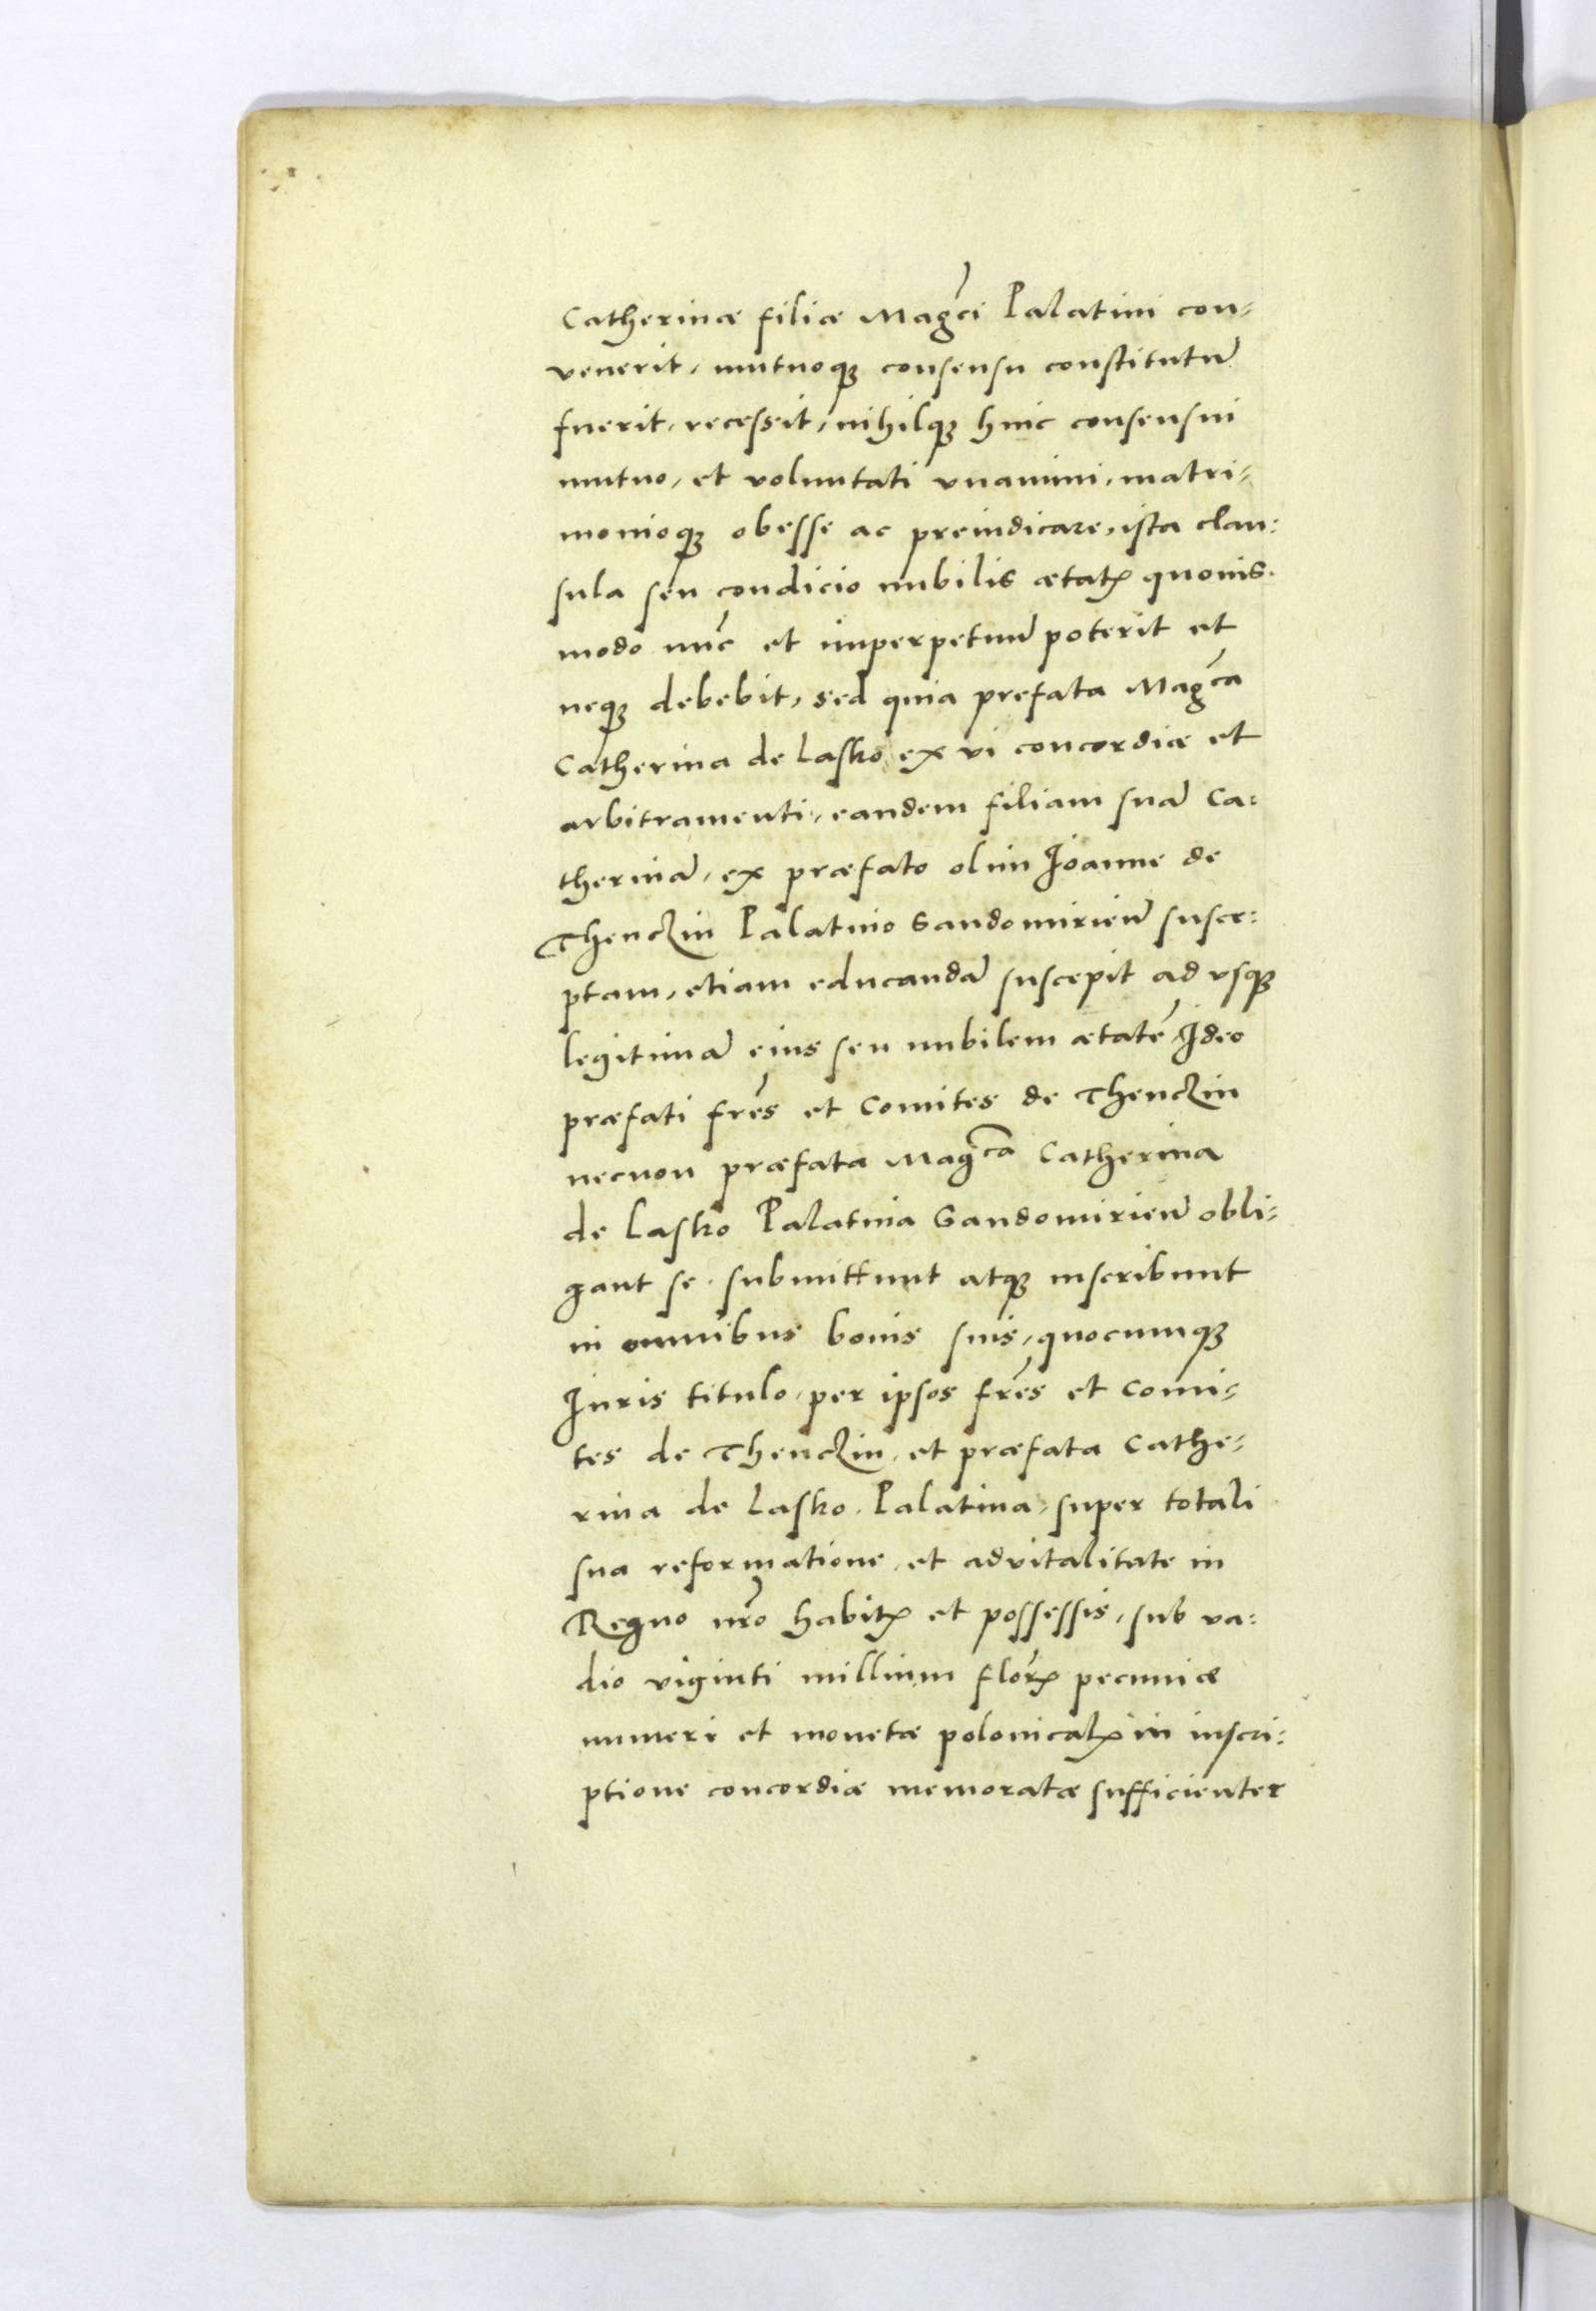 Catherinæ filiæ Magci Palatini con-
venerit, mutuoq3 consensu constitutū
fuerit, recessit, nihilq3 huic consensui
mutuo, et voluntati vnanimi, matri-
monioq3 obesse ac preiudicare, ista clau:
sula seu condicio nubilis ætatꝭ quouis.
modo nūc et imperpetuū poterit et
neq3 debebit, sed quia prefata Magca
Catherina de Lasko, ex vi concordiæ et
arbitramenti, eandem filiam suā Ca:
therinā, ex præfato olim Joanne de
Thenczin Palatino Sandomirien̄ susce:
ptam, etiam educandā suscepit ad vsq3
legitimā eius seu nubilem ætatē, Ideo
præfati fres̄ et Comites de Thenczin
necnon præfata Magca Catherina
de Lasko Palatina Sandomirien̄ obli-
gant se. submittunt atq3 inscribunt
in omnibus bonis suis, quocumq3
Juris titulo, per ipsos fres̄ et Comi-
tes de Thenczin, et præfata Cathe-
rina de Lasko. Palatina, super totali
sua reformatione, et advitalitate in
Regno nr̄o habitꝭ et possessis, sub va:
dio viginti millium florꝭ pecuniæ
numeri et monetæ polonicalꝭ in inscri:
ptione concordiæ memoratæ sufficienter